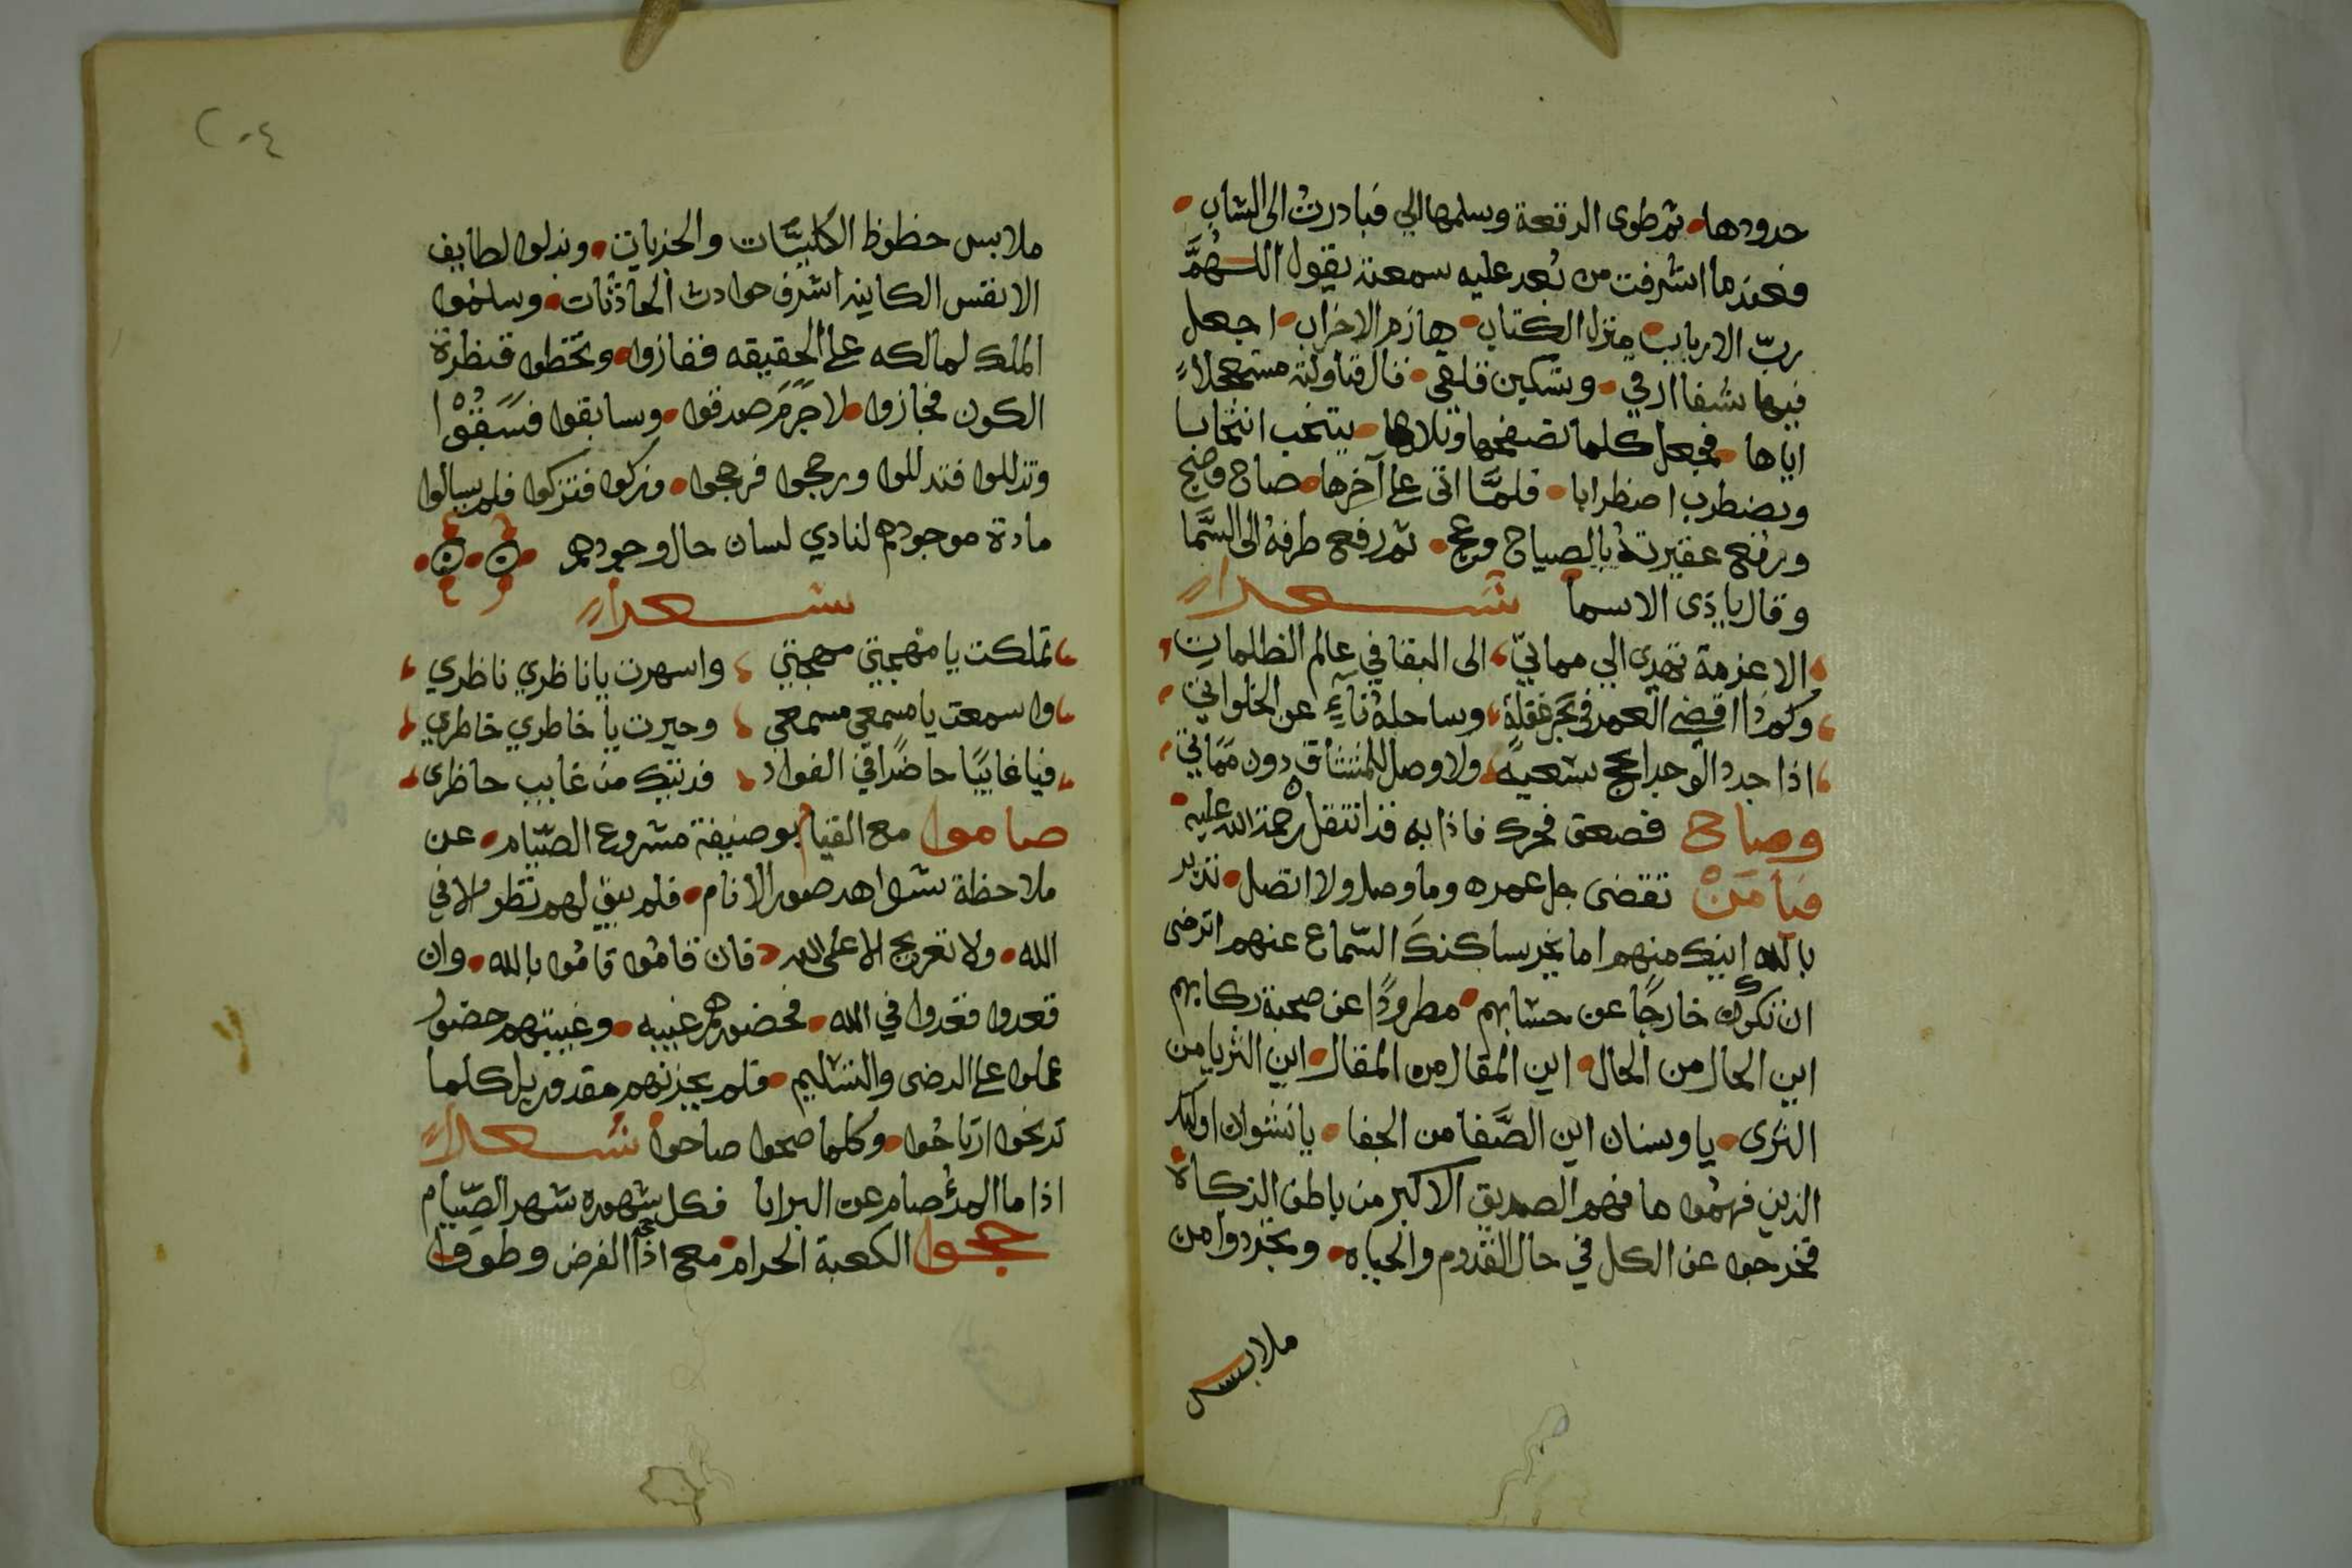 حدودها • ثم طوى الرقعة وسلمها الي فبادرت الى الشاب •
فعندما اشرفت من بُعد عليه سمعته يقول اللهمَّ
ربّ الارباب • منزل الكتاب • هازم الاحزاب • اجعل
فيها شفا ارقي • وتسكين قلقي • قال فناولته مستعجلاً
اياها • فجعل كلما تصفحها وتلاها • ينتحب انتحابا
ويضطرب اضطرابا • فلمَّا اتى على آخرها • صاح وضج
ورفع عقيرتهُ بالصياح وعج • ثم رفع طرفهُ الى السَّما
وقال يا ذى الاسما شعراً
الا عزمة تهدى الي مماتيّ الى البقا في عالم الظلمات
وكم ذا اقضى العمر في بحر غفلة وساحلهُ ناءٍ عن الخلوات
اذا جدد الوجد اعج شعية ولا وصل للمشتاق دون ممات
وصاح فصعق فحرك فاذا به قد انتقل رحمة الله عليه •
فيا مَنْ تقضى جل عمره وما وصل ولا اتصل •
بالله اينك منهم اما يحر ساكنكَ السّماع عنهم اترضى
ان تكون خارجًا عن حسابهم • مطرودًا عن صحبة ركابهم
اين الحال من الحال • اين المقال من المقال • اين الثريا من
الثرى • يا وسنان اين الصَّفا من الجفا • يا نشوان اوليك
الذين فهمُوا ما فهم الصديق الاكبر من باطن الزكاة •
فخرجوا عن الكل في حال القدوم والحياه • وتجردوا من
ملابس
٢٠٤
ملابس حظوظ الكليَّات والجزيات • وبذلوا لطايف
الانفس الكاينه اشرف حوادث الحادثات • وسلمُوا
الملك لمالكه على الحقيقه ففازوا • وتخطوا قنطرة
الكون فجازوا • لا جَرَمَ صدقوا • وسابقوا فسَبَقُوْا
وتذللوا فتدللوا ورجحوا فرجحوا • وزكوا فتزكوا فلم يسالوا
مادة موجودهم لنادي لسان حال وجودهم
شعراً
تملكت يا مهجتي مهجتي واسهرت يا ناظري ناظري
واسمعت يا مسمعي مسمعي وحيرت يا خاطري خاطري
فيا غايبًا حاضرًا في الفواد فديتك من غايب حاظرى
صاموا مع القيام بوضيفة مشروع الصّيام • عن
ملاحظة شواهد صور الانام • فلم يبق لهم نظر الا في
الله • ولا تعريج الا على الله • فان قامُوا قامُوا بالله • وان
قعدوا فقدوا في الله • فحضورهم غيبه • وغيبتهم حضور
عملوا على الرضى والتسليم • فلم يحزنهم مقدور بل كلما
تدنخوا ارتاحُوا • وكلما صحوا صاحوا • شعراً
اذا ما المرؤُ صام عن البرايا فكل شهوره شهر الصّيام
حجوا الكعبة الحرام • مع اذا حجه الفرض وطوفا